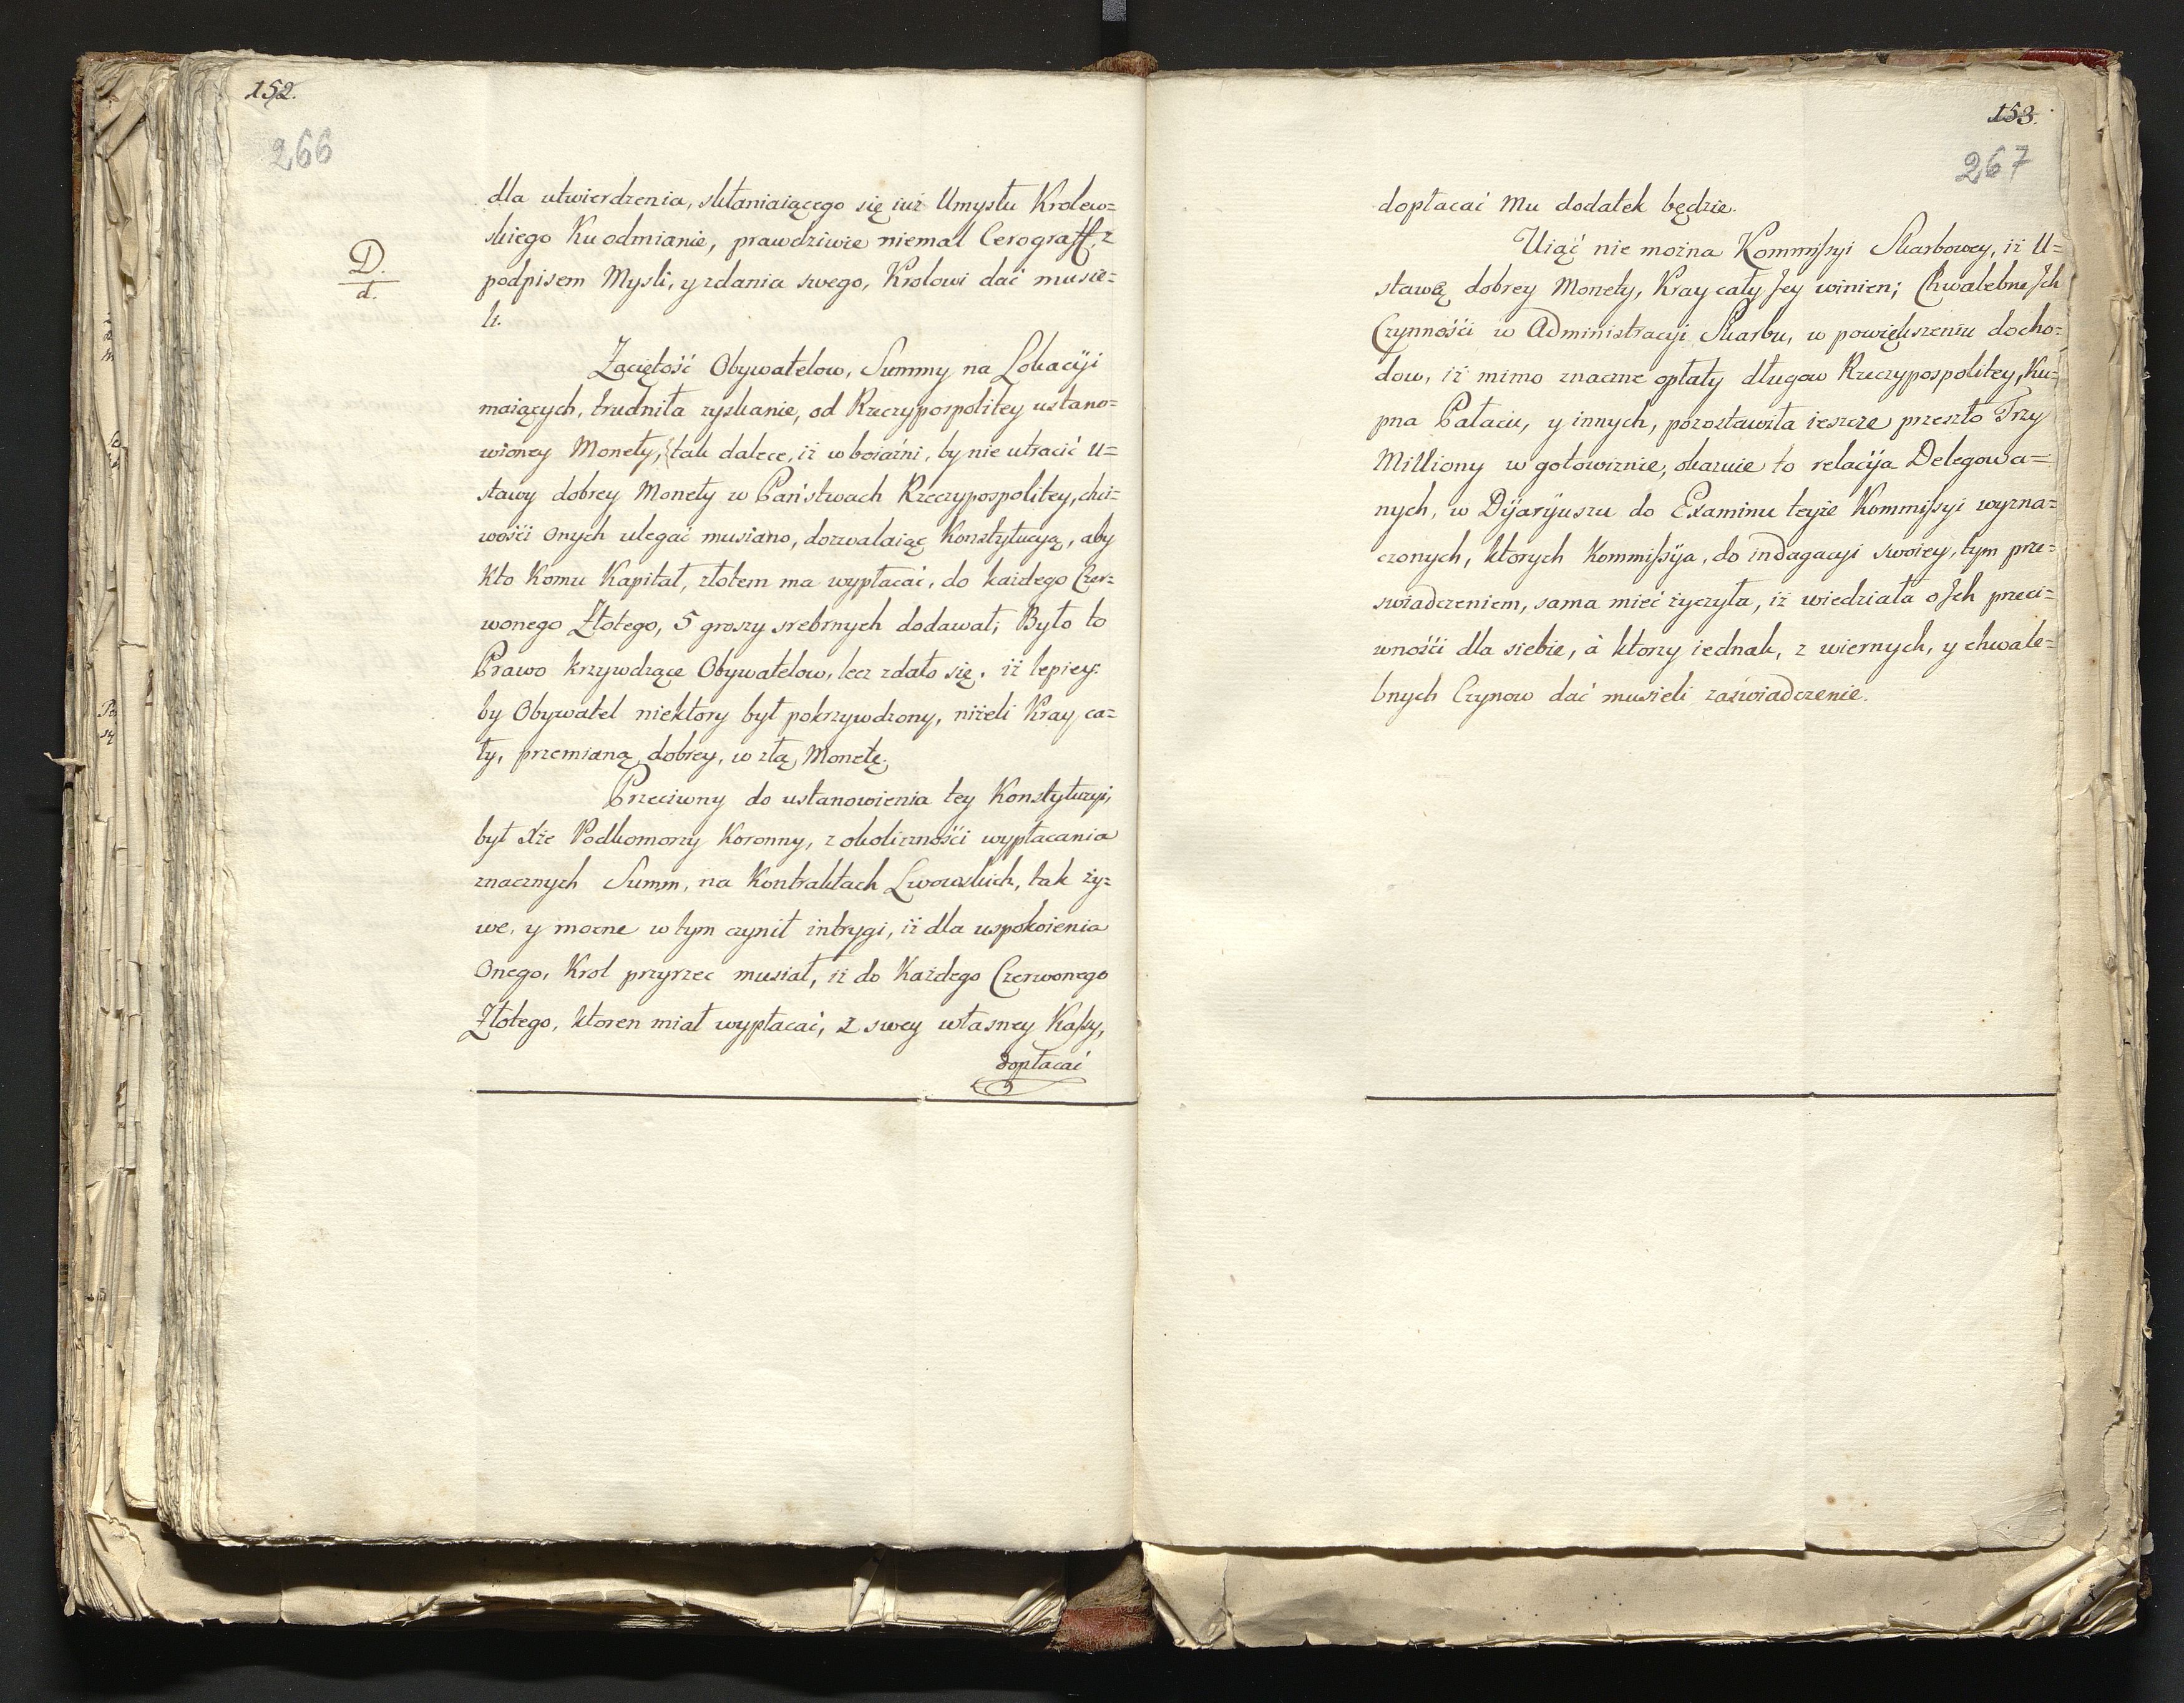 152.
266
D.
d.
dla utwierdzenia, skłaniaiącego się iuż Umysłu Krolew=
skiego Ku odmianie, prawdziwie niemal Cerograff, z
podpisem Mysli, y zdania swego, Krolowi dać musie=
li.
Zaciętość Obywatelow, Summy na Lokacyi
maiących, trudniła zyskanie, od Rzeczypospolitey ustano=
wioney Monety, tak dalece, iż w boiaźni, by nie utracić U=
stawy dobrey Monety w Państwach Rzeczypospolitey, chci=
wości onych ulegać musiano, dozwalaiąc Konstytucyą, aby
Kto Komu Kapitał, złotem ma wypłacać, do każdego Czer=
wonego Złotego, 5 groszy srebrnych dodawał; Było to
Prawo krzywdzące Obywatelow, lecz zdało się, iż lepiey:
by Obywatel niektory był pokrzywdzony, niżeli Kray ca=
ły, przemianą dobrey, w złą Monetę.
Przeciwny do ustanowienia tey Konstytucyi,
był Xże Podkomorzy Koronny, z okoliczności wypłacania
znacznych Summ, na Kontraktach Lwowskich, tak ży=
we, y mocne w tym czynił intrygi, iż dla uspokoienia
Onego, Krol przyrzec musiał, iż do Każdego Czerwonego
Złotego, ktoren miał wypłacać, z swey własney Kassy,
dopłacać
153.
267
dopłacać Mu dodatek będzie.
Uiąć nie można Kommissyi Skarbowey, iż U=
stawą dobrey Monety, Kray cały Jey winien; Chwalebne Jch
Czynności w Administracyi Skarbu, w powiększeniu docho=
dow, iż mimo znaczne opłaty długow Rzeczypospolitey, Ku=
pna Pałacu, y innych, pozostawiła ieszcze przeszło Trzy
Milliony w gotowiznie, okazuie to relacyja Delegowa=
nych, w Dyaryuszu do Examinu teyże Kommissyi wyzna=
czonych, ktorych Kommissyja, do indagacyi swoiey, tym prze=
swiadczeniem, sama mieć życzyła, iż wiedziała o Jch przeci=
wności dla siebie, à ktorzy iednak, z wiernych, y chwale=
bnych Czynow dać musieli zaświadczenie.